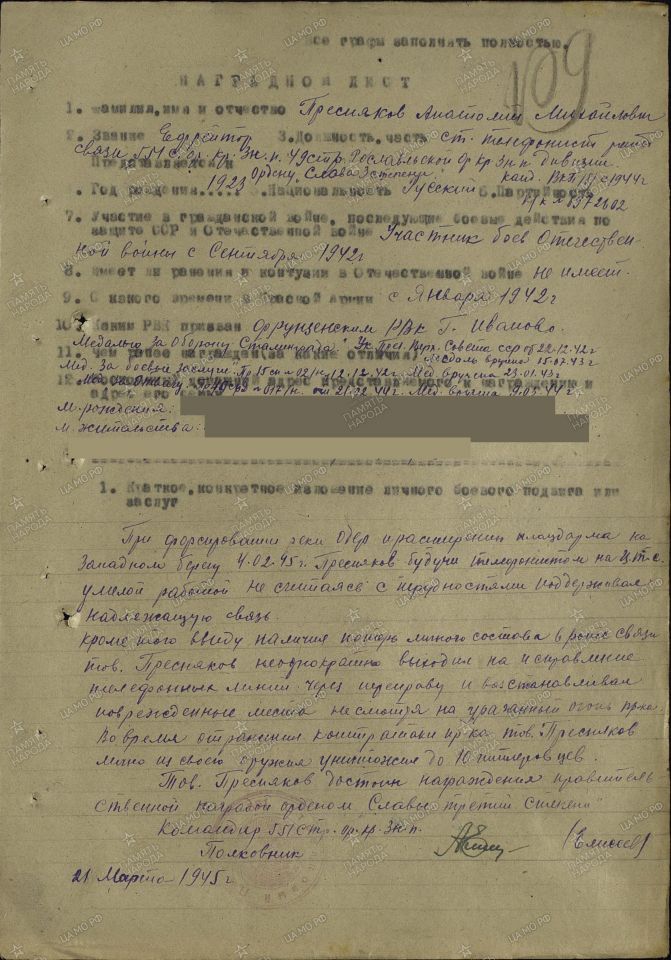 Все графы заполнять полностью.
109
НАГРАДНОЙ ЛИСТ
1. Фамилия, имя и отчество Пресняков Анатолий Михайлович
2. Звание Ефрейтор 3. Должность, часть ст. телефонист роты
связи 551 стр. ор. кр. зн. п. 49 стр. Рославльской ор. кр. зн. дивизии
Представляется к Ордену "Слава 3 степени" канд. ВКП(б) с 1944г
. Год рождения 1923 5. Национальность Русский 6. Партийность
к/к №
7. Участие в гражданской войне, последующие боевые действия по
защите ССР и Отечественной войне Участник боев Отечествен-
ной войны с Сентября 1942г
8. Имеет ли ранения и контузии в Отечественной войне не имеет.
9. С какого времени в Красной Армии с Января 1942г
10. Каким РВК призван Фрунзенским РВК г. Иваново.
Медалью "За Оборону Сталинграда" Ук. През. Верх. Совета ссср от 22.12.42г
11. Чем ранее награжден (за какие отличия) Медаль вручена 15.07.43г
Мед. За боевые заслуги. Пр 15 сп № 02/н 12.12.42г. Мед. вручена 23.01.43г
12. адрес представляемого к награждению и
Мед. За Отвагу от 21.02.44г. Мед. вручена 9.03.44г
адрес его
м. рождения:
м. жительства:
1. Краткое, конкретное изложение личного боевого подвига или
заслуг
При форсировании реки Одер и расширении плацдарма на
Западном берегу 4.02.45г. Пресняков будучи телефонистом на Ц.Т.С.
умелой работой не считаясь с трудностями поддерживал
надлежащую связь.
Кроме того ввиду наличия потерь личного состава в роте связи
тов. Пресняков неоднократно выходил на исправление
телефонных линий через переправу и восстанавливал
поврежденные места не смотря на ураганный огонь пр-ка.
Во время отражения контратаки пр-ка тов. Пресняков
лично из своего оружия уничтожил до 10 гитлеровцев.
Тов. Пресняков достоин награждения правитель
ственной наградой орденом "Славы третий степени"
Командир 551 стр. ор. кр. зн. п.
Полковник (Елисеев)
21 Марта 1945г
ПАМЯТЬ НАРОДА
ЦА.МО.РФ